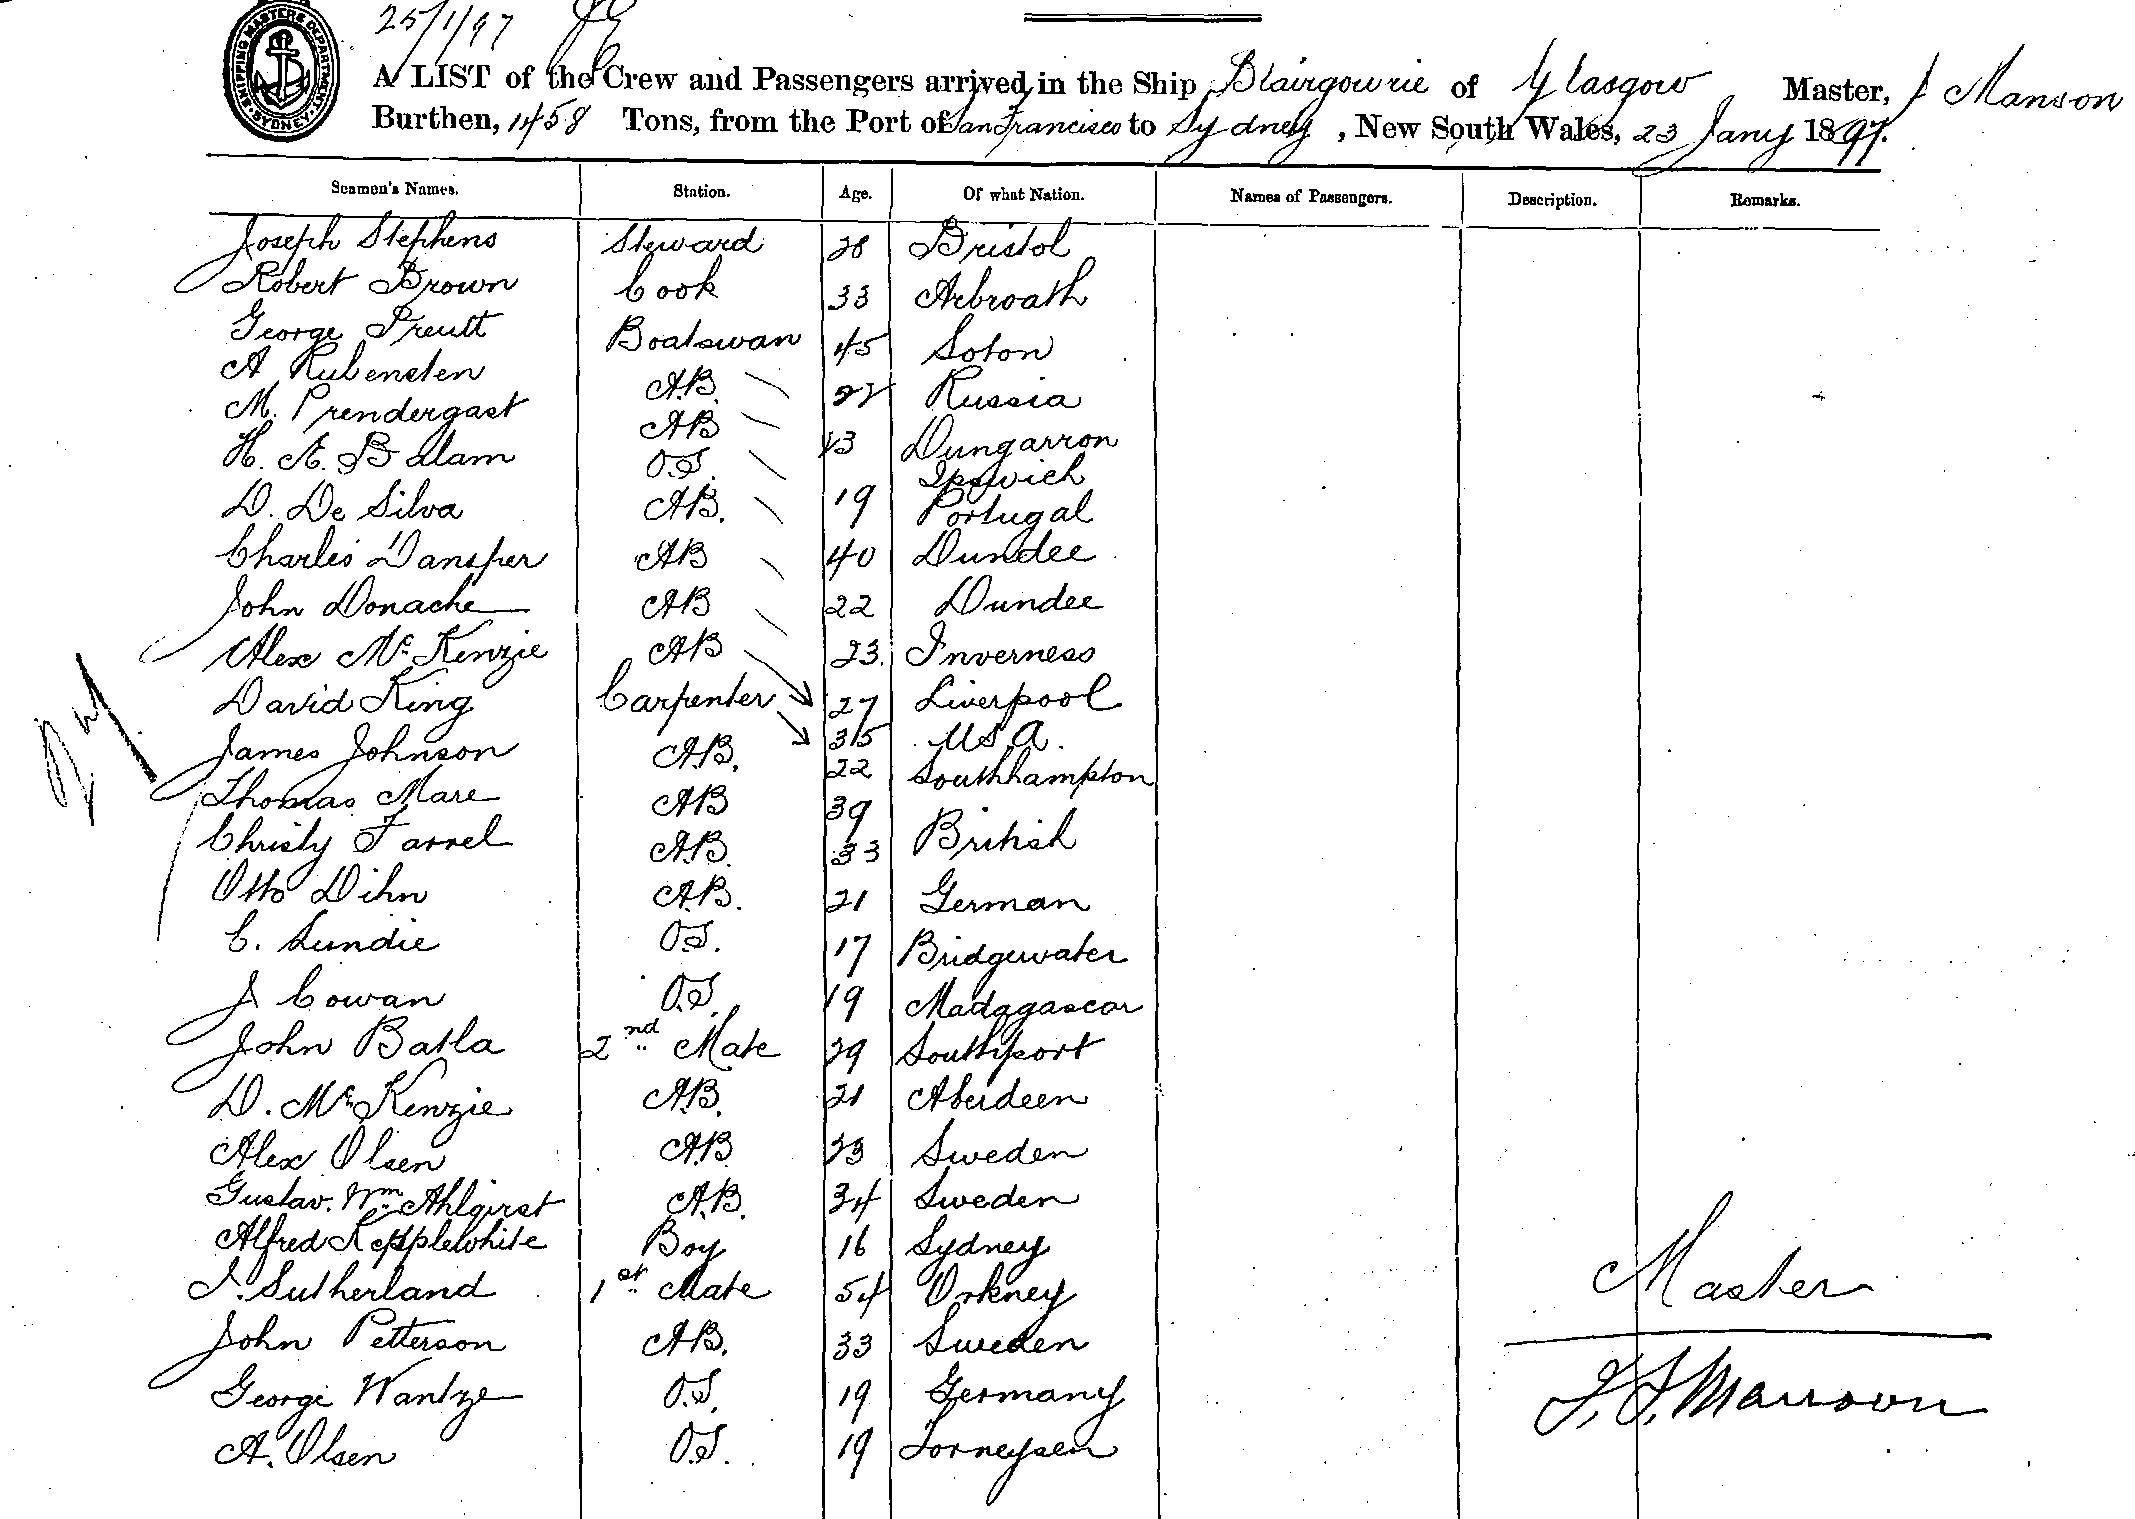 25/1/97
SHIPPING MASTERS DEPARTMENT SYDNEY
A LIST of the Crew and Passengers arrived in the Ship Blairgowrie of Glasgow Master, J Manson
Burthen, 1458 Tons, from the Port of San Francisco to Sydney, New South Wales, 23 Jany 1897.
Seamen's Names. Station. Age. Of what Nation. Names of Passengers. Description. Remarks.
Joseph Stephens Steward 28 Bristol
Robert Brown Cook 33 Arbroath
George Preutt Boatswan 45 Soton
A Rubensten A.B. 22 Russia
M. Prendergast AB 43 Dungarron
H. A. Balam O.S. Ipswich
D. De Silva A.B. 19 Portugal
Charles Dansper AB 40 Dundee
John Donache AB 22 Dundee
Alex McKenzie AB 23. Inverness
David King Carpenter 27 Liverpool
James Johnson A.B. 35 U.S.A.
Thomas Mare AB 22 Southhampton
Christy Farrel A.B. 39 British
Otto Dihn A.B. 33 21 German
C. Lundie O.S. 17 Bridgewater
J Cowan O.S. 19 Madagascar
John Batla 2nd Mate 29 Southport
D. McKenzie A.B. 21 Aberdeen
Alex Olsen A.B 23 Sweden
Gustav. Wm Ahlgirst A.B. 34 Sweden
Alfred Kepplewhite Boy 16 Sydney
J. Sutherland 1st Mate 54 Orkney
Master
John Petterson A.B. 33 Sweden
George Wantze O.S. 19 Germany
J. J. Manson
A. Olsen O.S. 19 Torneysen